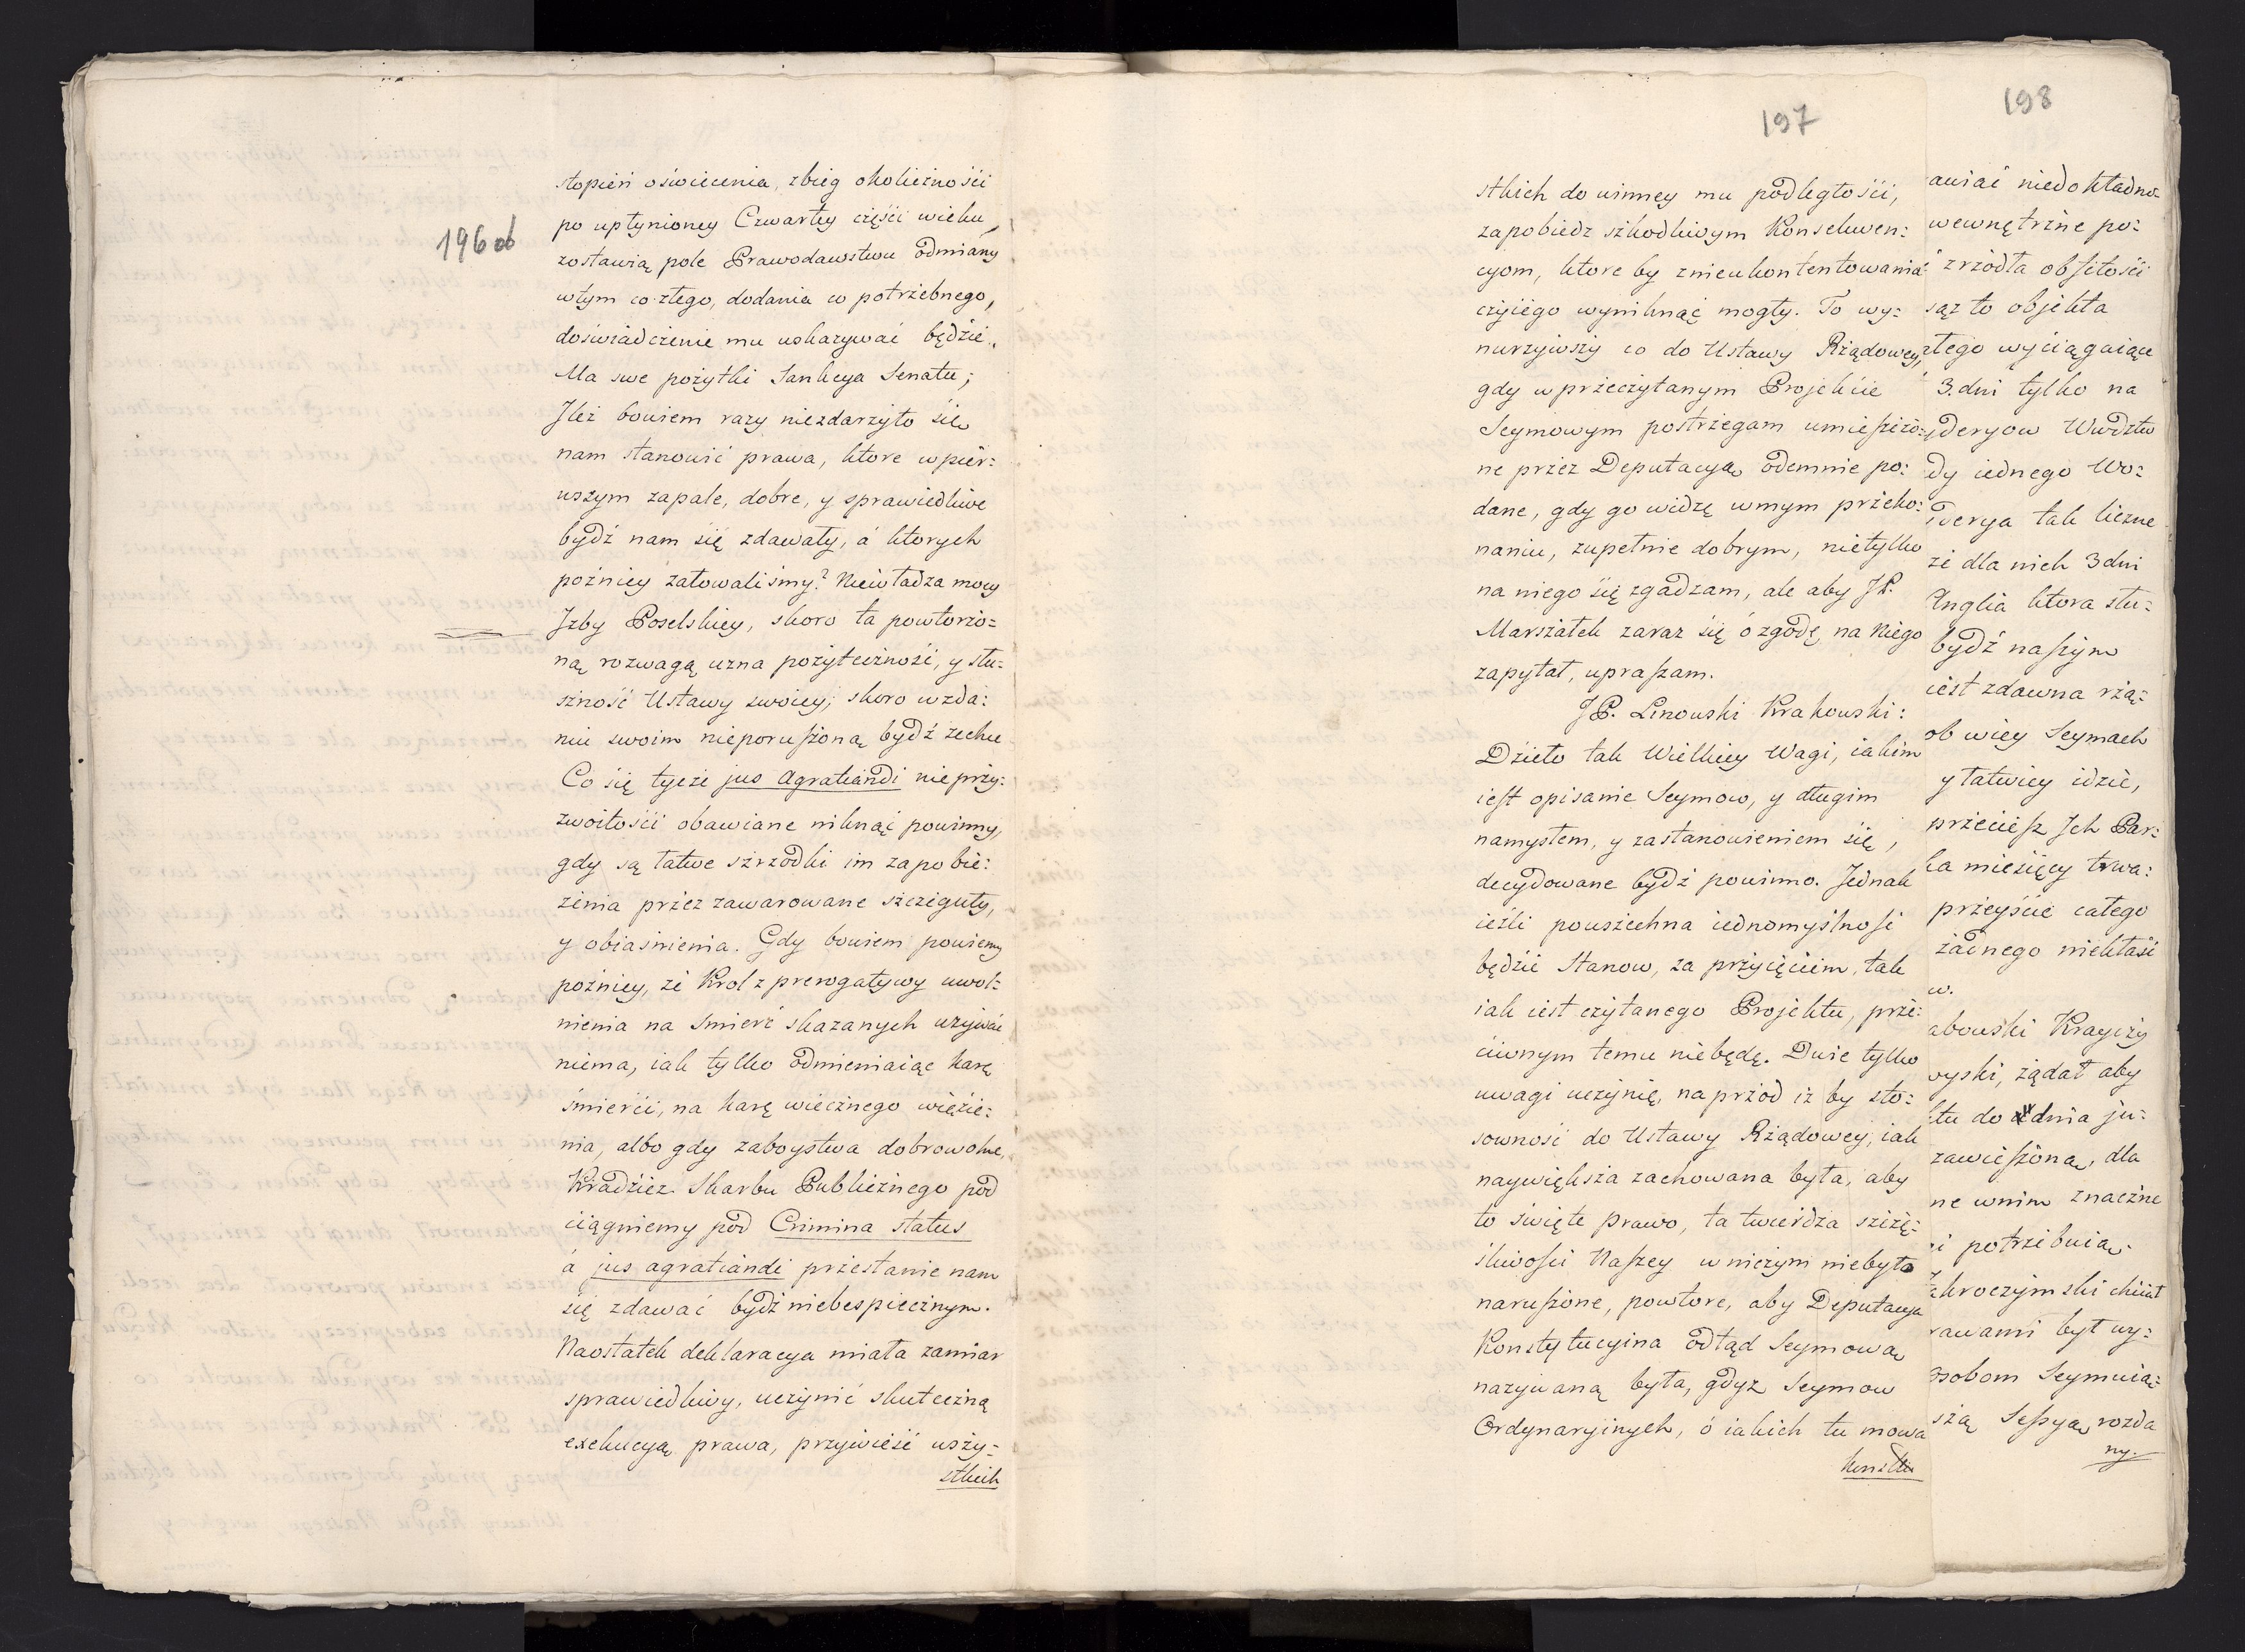 196 ob
stopień oświecenia, zbieg okoliczności
po upłynioney Czwartey części wieku,
zostawią pole Prawodawstwu odmiany
wtym co złego, dodania co potrzebnego,
doświadczenie mu uskazywać będzie.
Ma swe pożytki Sankcya Senatu;
Jleż bowiem razy niezdarzyło się
nam stanowić prawa, ktore wpier:
wszym zapale, dobre, y sprawiedliwe
bydź nam się zdawały, á ktorych
poźniey żałowaliśmy? Nieiwładza mocy
Jzby Poselskiey, skoro ta powtorzo=
ną rozwagą uzna pożyteczność, y słu=
szność Ustawy swoiey; skoro wzda:
niu swoim nieporuszoną bydź zechce
Co się tycze jus Agratiandi nieprzy:
zwoitości obawiane niknąć powinny,
gdy są łatwe szrzodki im zapobie:
żenia przez zawarowane szczeguły,
y obiaśnienia. Gdy bowiem powiemy
poźniey, że Krol z prerogatywy uwol:
nienia na Smierć skazanych używać
niema, iak tylko odmieniaiąc karę
śmierći, na karę wiecznego więzie:
nia, albo gdy zaboystwa dobrowolne,
Kradzież Skarbu Publicznego pod
ciągniemy pod Crimina status
á jus agratiandi przestanie nam
się zdawać bydź niebespiecznym.
Naostatek deklaracya miała zamiar
sprawiedliwy, uczynić skuteczną
exekucyą prawa, przywieść wszy=
stkich
197
stkich do winney mu podległości,
zapobiedz szkodliwym Konsekwen:
cyom, ktore by znieukontentowania
czyiego wyniknąć mogły. To wy:
nurzywszy co do Ustawy Rządowey,
gdy wprzeczytanym Projekcie
Seymowym postrzegam umieszczo:
ne przez Deputacyą odemnie po:
dane, gdy go widzę wmym przeko:
naniu, zupełnie dobrym, nietylko
na niego się zgadzam, ale aby JP.
Marszałek zaraz się ó zgodę na Niego
zapytał, upraszam.
JP. Linowski Krakowski:
Dzieło tak Wielkiey Wagi, iakim
iest opisanie Seymow, y długim
namysłem, y zastanowieniem się,
decydowane bydź powinno. Jednak
ieźli powszechna iednomyślność
będzie Stanow, za przyięciem, tak
iak iest czytanego Projektu, prze:
ciwnym temu niebędę. Dwie tylko
uwagi uczynię, na przod iż by sto:
sowność do Ustawy Rządowey, iak
naywiększa zachowana była, aby
to święte prawo, ta twierdza szczę:
śliwości Naszey wniczym niebyło
naruszone, powtore, aby Deputacya
Konstytucyina odtąd Seymową
nazywaną była, gdyż Seymow
Ordynaryinych, ó iakich tu mowa
198
awiać niedokładno=
wewnętrzne po:
zrzodła obfitości
sąz to objekta
złego wyciągaiące
3. dni tylko na
dy iednego Wo:
tak liczne
że dla nich 3 dni
Anglia ktora słu:
bydź naszym
iest zdawna rzą:
ob wiey Seymach
y łatwiey idzie,
przecież Jch Par:
ka miesięcy trwa:
przeyście całego
żadnego niekłaśc
w.
abowski Krayczy
żądał aby
ktu do dnia ju:
zawieszoną, dla
ne wnim znaczne
i potrzebuią.
akroczymski chciał
rawami był wy:
osobom Seymuią:
szą Sessyą, rozda
ny.